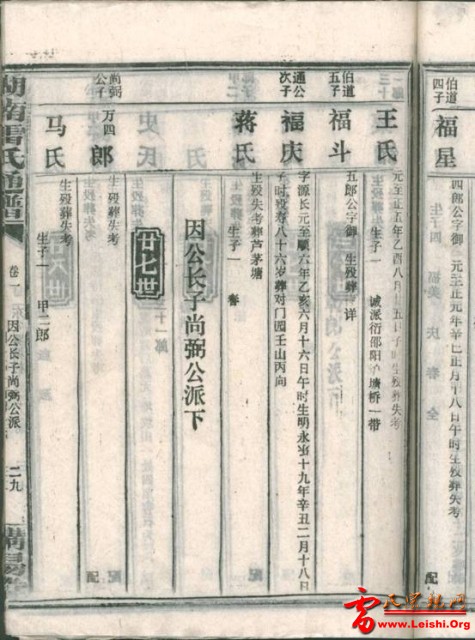 伯道四子
福星
四郎公字御
元至正元年辛巳正月十八日午时生殁葬失考
配
王氏
元至正五年乙酉八月
五日子时生殁葬失考
生子一
诚派衍邵阳
塘桥一带
伯道五子
福斗
五郎公字御
生殁葬
详
通公次子
福庆
字源长元至顺六年乙亥六月十六日午时生明永
十九年辛丑二月十八日
子时殁寿八十六岁葬对门园壬山丙向
配
蒋氏
生殁失考葬芦茅塘
生子一
春
因公长子尚弼公派下
廿七世
尚弼公子
万四郎
生殁葬失考
配
马氏
生殁葬失考
生子一
甲二郎
湖南雷氏通谱
卷一
因公长子尚弼公派
二九
雷氏宗亲网
www.Leishi.Org